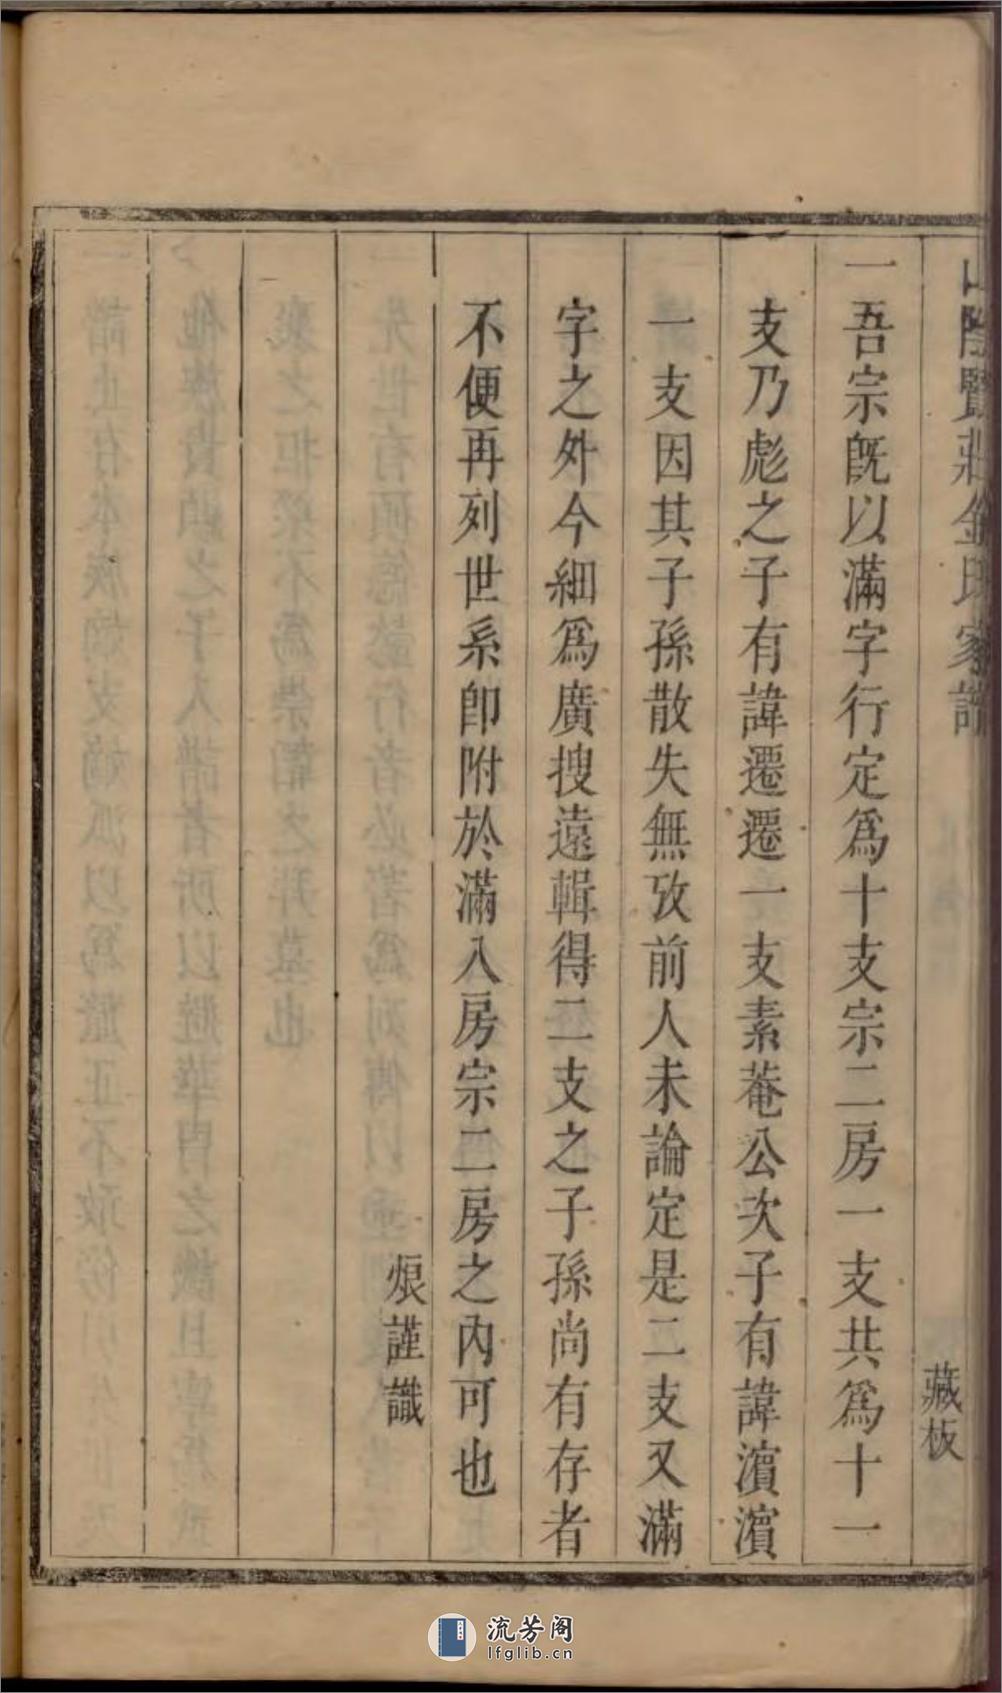 山陰賢莊金氏家譜
藏板
一吾宗旣以滿字行定爲十支宗二房一支共爲十一
支乃彪之子有諱遷遷一支素菴公次子有諱濵濵
一支因其子孫散失無攷前人未論定是二支又滿
字之外今細爲廣搜遠輯得二支之子孫尚有存者
不便再列世系卽附於滿入房宗二房之內可也
烺謹識
流芳阁
lfglib.cn